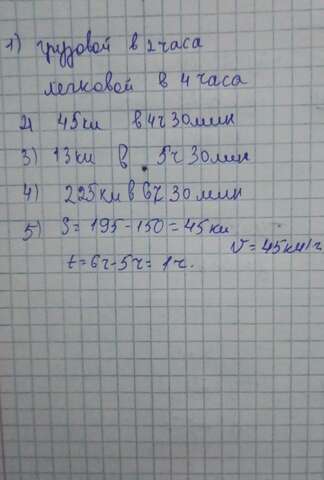 1) грузовой в 2 часа
легковой в 4 часа
2) 45км в 4ч 30 мин
3) 13км в 5ч 30 мин
4) 225км в 6ч 30 мин
5) S = 195 - 150 = 45 км
t = 6ч - 5ч = 1 ч. V = 45 км/ч